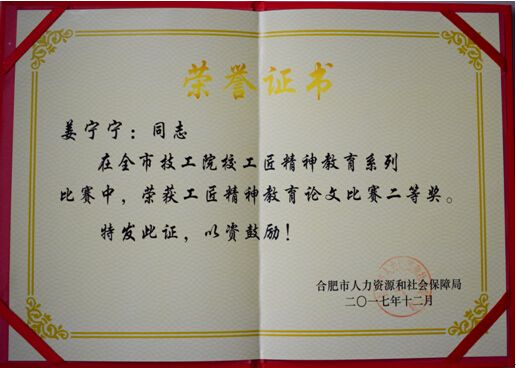 荣誉证书
姜宁宁：同志
在全市技工院校工匠精神教育系列
比赛中，荣获工匠精神教育论文比赛二等奖。
特发此证，以资鼓励！
合肥市人力资源和社会保障局
二〇一七年十二月